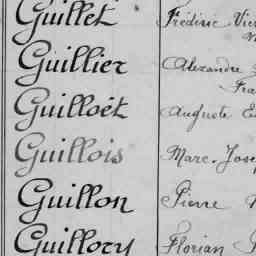 Guillet Frédéric
Guillier Alexandre
Guilloët Auguste
Guillois Marc-Jose
Guillon Pierre
Guillory Florian